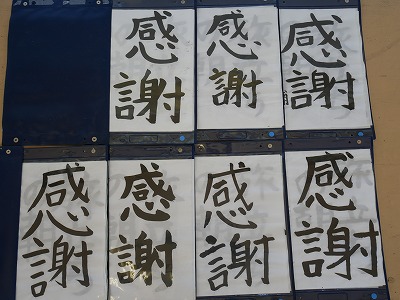 感謝
感謝
感謝
感謝
感謝
感謝
感謝